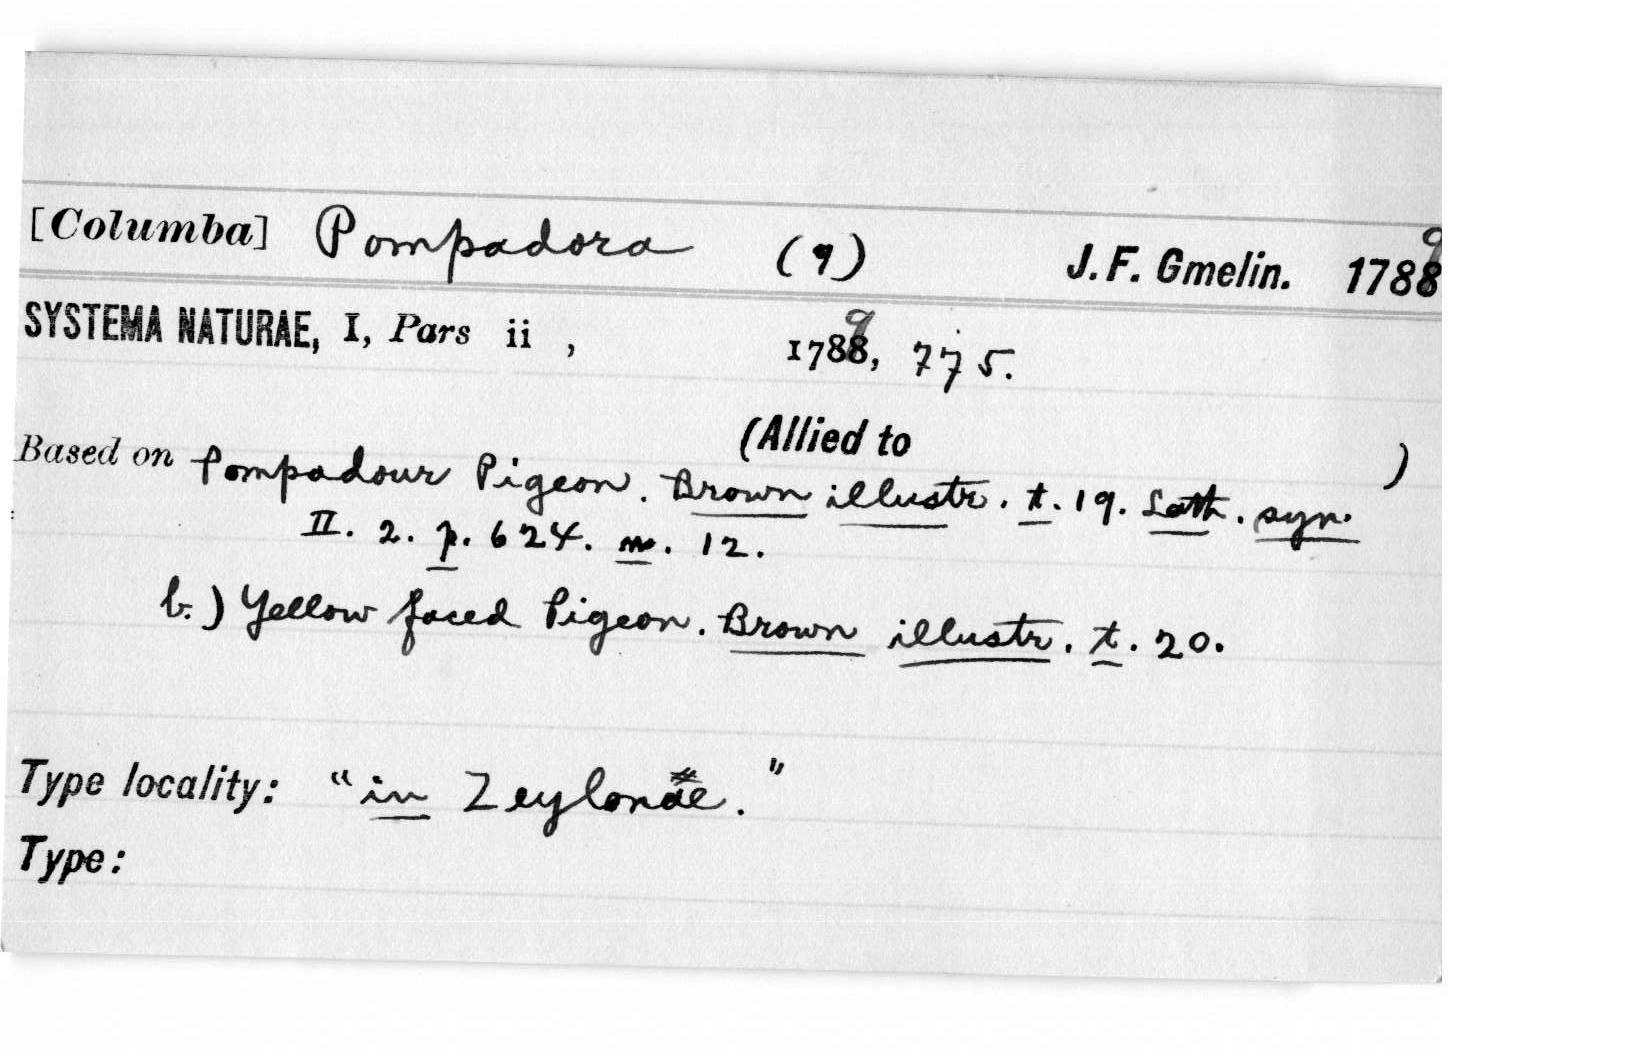 [Columba] Pompadora (9) J. F. Gmelin. 1789
SYSTEMA NATURAE, I, Pars ii , 1789, 775.
(Allied to )
Based on Pompadour Pigeon. Brown illustr. t. 19. Lath. syn.
II. 2. p. 624. n. 12.
b.) Yellow faced Pigeon. Brown illustr. t. 20.
Type locality: "in Zeylonae."
Type: